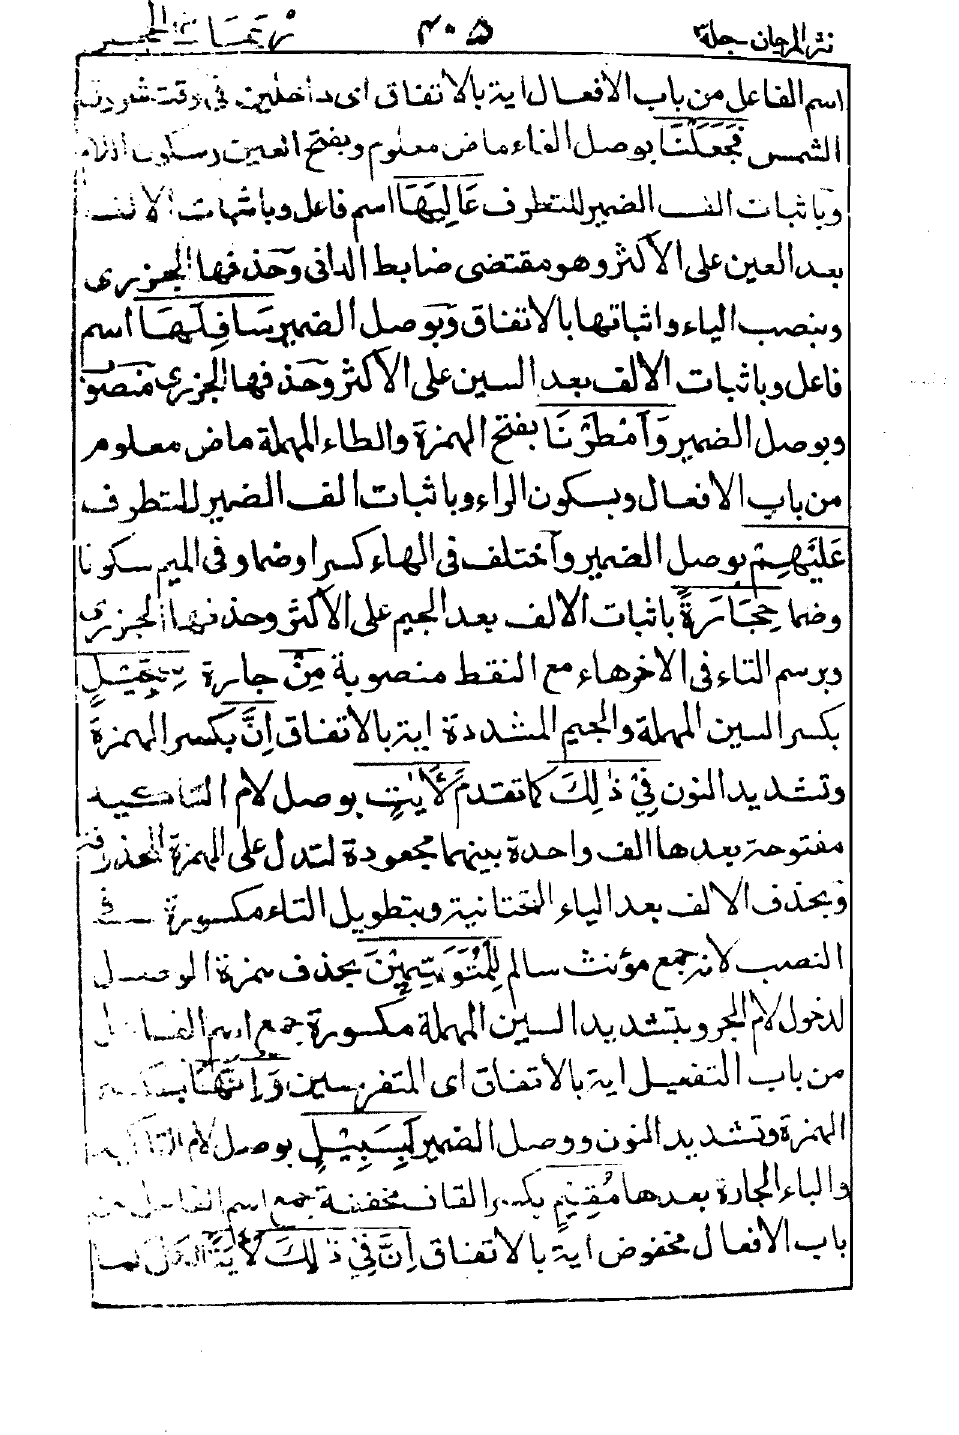 نثر المرجان - جلد ٣ ٤٠٥ ربما الحجر
اسم الفاعل من باب الافعال اية بالاتفاق اى داخلين فى وقت شروق
الشمس فَجَعَلْنَا بوصل الفاء ماض معلوم وبفتح العين وسكون اللام
وباثبات الف الضمير للتطرف عَالِيَهَا اسم فاعل وباثبات الالف
بعد العين على الاكثر وهو مقتضى ضابط الدانى وحذفها الجزرى
وبنصب الياء واثباتها بالاتفاق وبوصل الضمير سَافِلَهَا اسم
فاعل وباثبات الالف بعد السين على الاكثر وحذفها الجزرى منصوب
وبوصل الضمير وَاَمْطَرْنَا بفتح الهمزة والطاء المهملة ماض معلوم
من باب الافعال وبسكون الراء وباثبات الف الضمير للتطرف
عَلَيْهِمْ بوصل الضمير واختلف فى الهاء كسرا وضما وفى الميم سكونا
وضما حِجَارَةً باثبات الالف بعد الجيم على الاكثر وحذفها الجزرى
وبرسم التاء فى الاخر هاء مع النقط منصوبة مِنْ جارة سِجِّيْلٍ
بكسر السين المهملة والجيم المشددة اية بالاتفاق اِنَّ بكسر الهمزة
وتشديد النون فِىْ ذٰلِكَ كما تقدم لَاٰيٰتٍ بوصل لام التاكيد
مفتوحة بعدها الف واحدة بينهما مجعودة لتدل على الهمزة المحذوفة
وبحذف الالف بعد الياء التحتانية وبتطويل التاء مكسورة فى
النصب لانه جمع مؤنث سالم لِلْمُتَوَسِّمِيْنَ بحذف همزة الوصل
لدخول لام الجر وبتشديد السين المهملة مكسورة جمع اسم الفاعل
من باب التفعيل اية بالاتفاق اى المتفرسين وَاِنَّهَا بكسر
الهمزة وتشديد النون ووصل الضمير لَبِسَبِيْلٍ بوصل لام التاكيد
والباء الجارة بعدها مُقِيْمٍ بكسر القاف مخففة جمع اسم الفاعل من
باب الافعال مخفوض اية بالاتفاق اِنَّ فِىْ ذٰلِكَ لَاٰيَةً